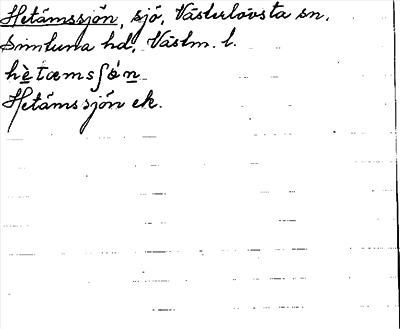 Hetämssjön, sjö, Västerlövsta sn,
Simtuna hd, Västm. l.
hètæmsʃö́n
Hetämssjön ek.